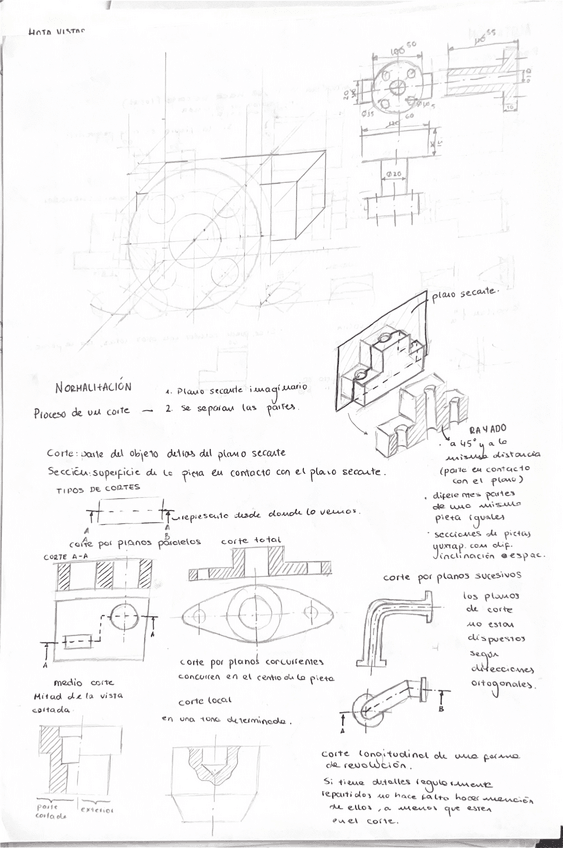 HOJA VISTAS
50
55
20
60
Ø20
plano secante.
NORMALITACIÓN
1. Plano secante imaginario
Proceso de un corte → 2. Se separan las partes.
RAYADO
· a 45º y a la
misma distancia
(parte en contacto
con el plano)
· diferentes partes
de una misma
pieza iguales
· secciones de piezas
yuxtap. con dif.
inclinación o espac.
Corte: parte del objeto detrás del plano secante
Sección: superficie de la pieza en contacto con el plano secante.
TIPOS DE CORTES
represento desde donde lo vemos.
A
A
B
corte por planos paralelos
corte total
CORTE A-A
A
A
corte por planos sucesivos
los planos
de corte
no estan
dispuestos
segun
direcciones
ortogonales.
A
B
corte por planos concurrentes
concurren en el centro de la pieza
medio corte
Mitad de la vista
cortada.
corte local
en una zona determinada.
parte
cortada
exterior
corte longitudinal de una forma
de revolución.
Si tiene detalles regularmente
repartidos no hace falta hacer mención
de ellos, a menos que esten
en el corte.